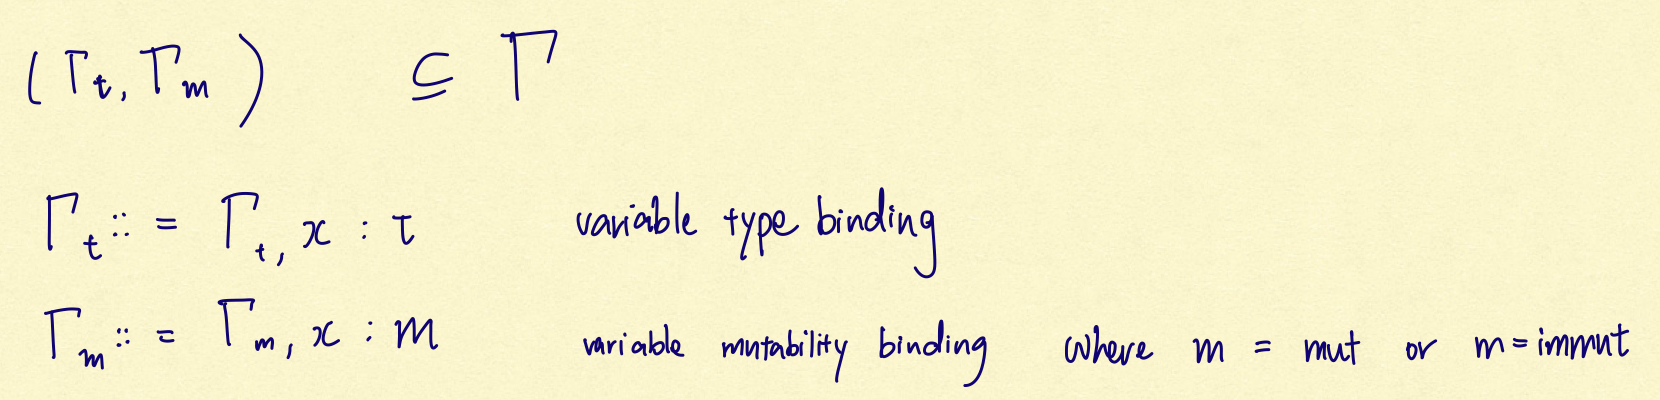 (Γt, Γm) ⊆ Γ
Γt ::= Γt, x : τ variable type binding
Γm ::= Γm, x : m variable mutability binding where m = mut or m = immut